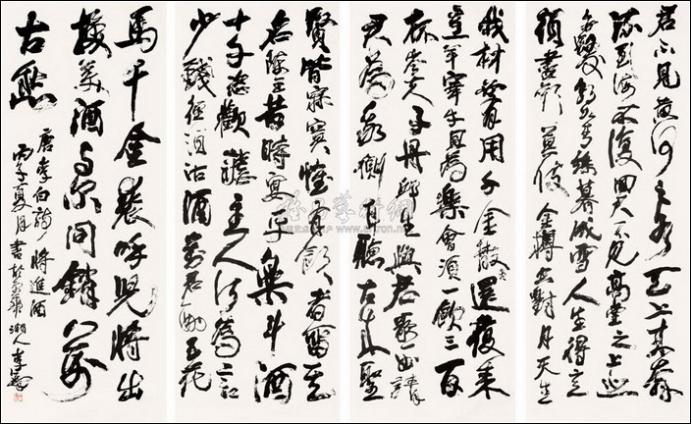 君不見黃河之水天上來奔
流到海不復回又不見高堂之上悲
白髮朝如青絲暮成雪人生得意
須盡歡莫使金樽空對月天生
我材必有用千金散盡還復來
烹羊宰牛且為樂會須一飲三百
杯岑夫子丹邱生與君歌一曲請
君為我側耳聽古來聖
賢皆寂寞惟有飲者留其
名陳王昔時宴平樂斗酒
十千恣歡謔主人何為言
少錢徑須沽酒對君酌五花
馬千金裘呼兒將出
換美酒與爾同銷萬
古愁
唐李白詩將進酒
丙子夏月書於 潮人李